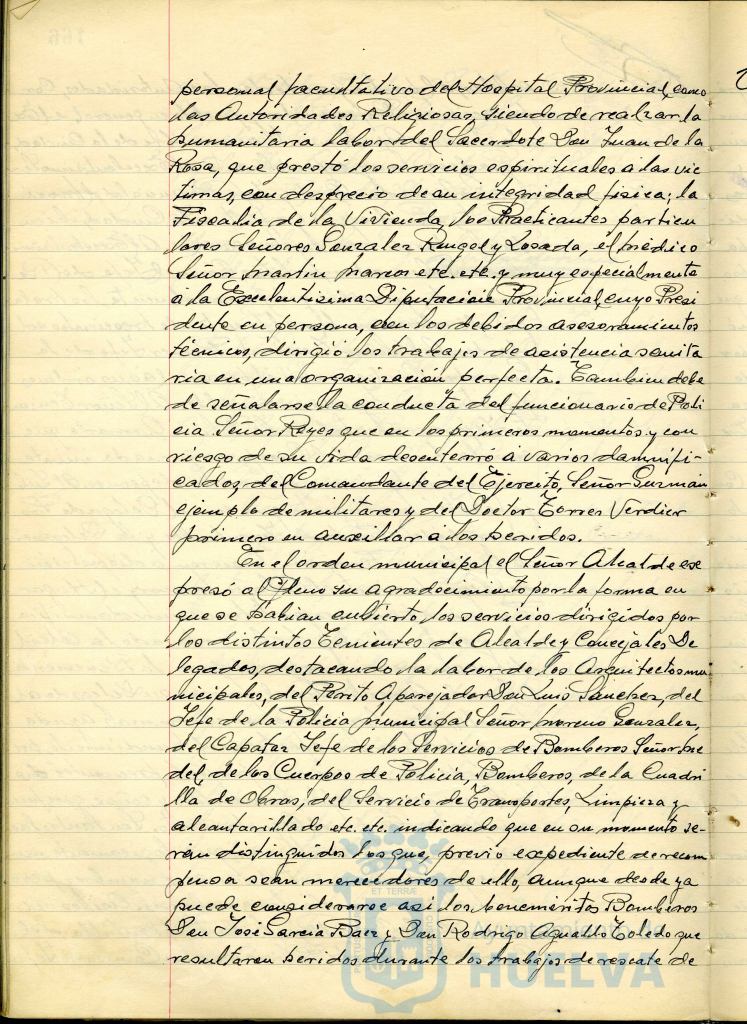 personal facultativo del Hospital Provincial, como
las Autoridades Religiosas, siendo de realzar la
humanitaria labor del Sacerdote Don Juan de la
Rosa, que prestó los servicios espirituales a las víc
timas, con desprecio de su integridad física; la
Fiscalia de la Vivienda, los Practicantes particu
lares Señores Gonzalez Rengel y Losada, el médico
Señor Martin Marcos etc. etc. y muy especialmente
á la Excelentísima Diputación Provincial, cuyo Presi
dente en persona, con los debidos asesoramientos
técnicos, dirigió los trabajos de asistencia sanita
ria en una organización perfecta. Tambien debe
de señalarse la conducta del funcionario de Poli
cia Señor Reyes que en los primeros momentos y con
riesgo de su vida desenterró á varios damnifi-
cados, del Comandante del Ejercito, Señor Guzman
ejemplo de militares y del Doctor Torres Verdier
primero en auxiliar á los heridos.
En el orden municipal el Señor Alcalde ex
presó al Pleno su agradecimiento por la forma en
que se habian cubierto los servicios dirigidos por
los distintos Tenientes de Alcalde y Concejales De
legados, destacando la labor de los Arquitectos mu
nicipales, del Perito Aparejador Don Luis Sanchez, del
Jefe de la Policia Municipal Señor Moreno Gonzalez,
del Capataz Jefe de los Servicios de Bomberos Señor Me
del, de los Cuerpos de Policia, Bomberos, de la Cuadri
lla de Obras, del Servicio de Transportes, Limpieza y
alcantarillado etc. etc. indicando que en su momento se-
rán distinguidos los que, previo expediente de recom
pensa sean merecedores de ello, aunque desde ya
puede considerarse asi los beneméritos Bomberos
Don José Garcia Baez y Don Rodrigo Agualto Toledo que
resultaron heridos durante los trabajos de rescate de
ET TERRÆ
HUELVA